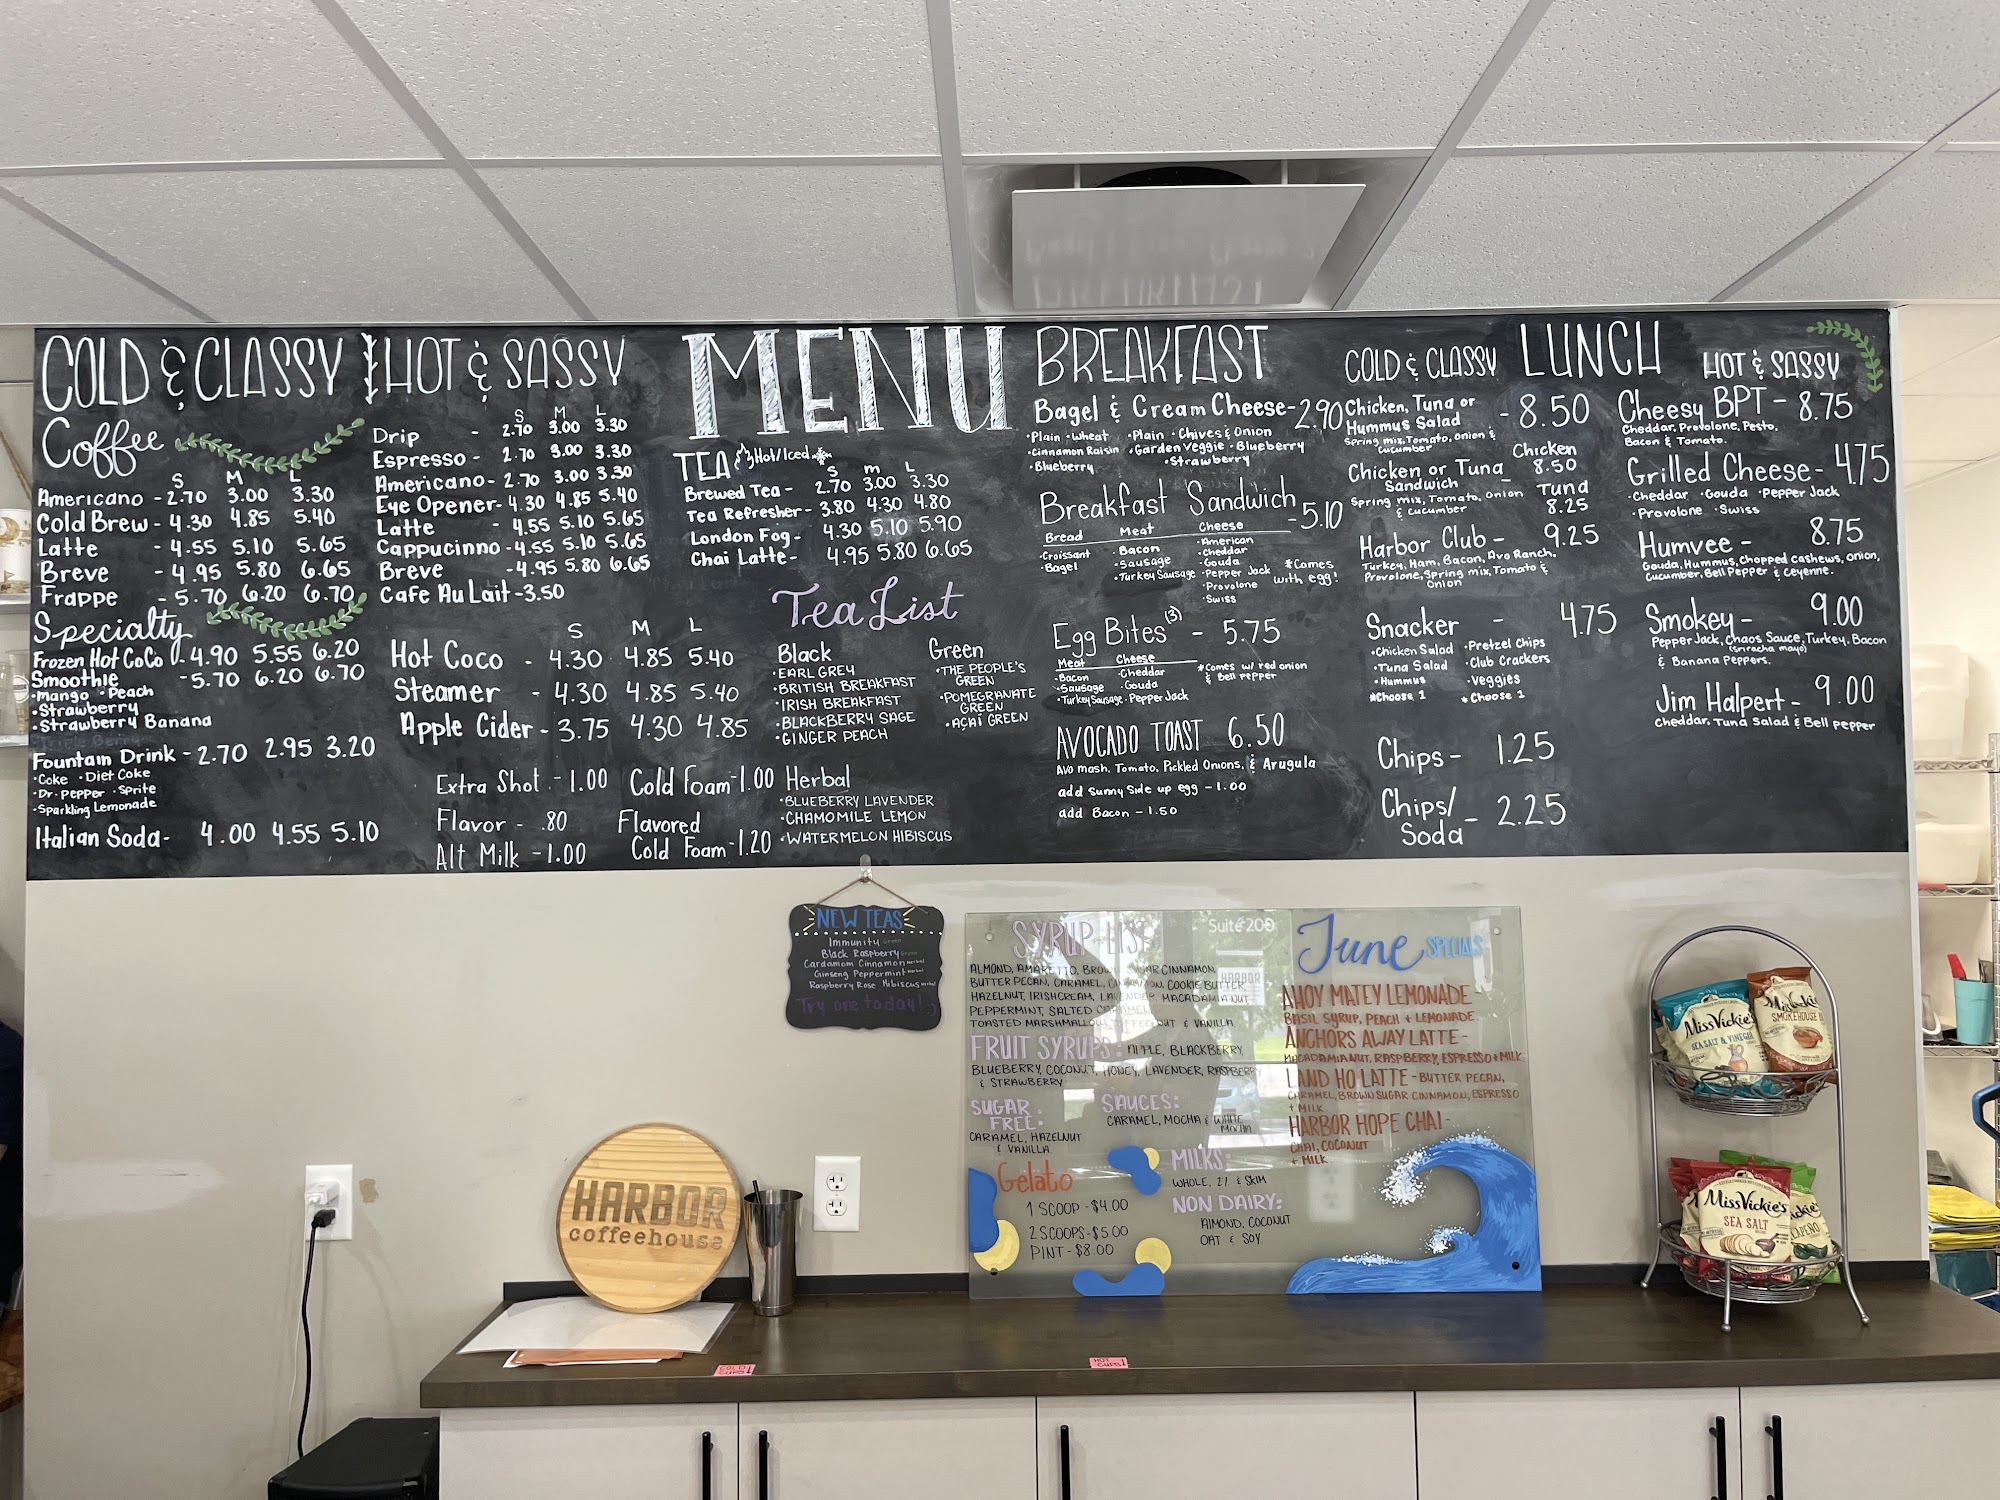 COLD & CLASSY
Coffee
S M L
Americano - 2.70 3.00 3.30
Cold Brew - 4.30 4.85 5.40
Latte - 4.55 5.10 5.65
Breve - 4.95 5.80 6.65
Frappe - 5.70 6.20 6.70
Specialty
Frozen Hot CoCo - 4.90 5.55 6.20
Smoothie - 5.70 6.20 6.70
•Mango •Peach
•Strawberry
•Strawberry Banana
Fountain Drink - 2.70 2.95 3.20
•Coke •Diet Coke
•Dr. Pepper •Sprite
•Sparkling Lemonade
Italian Soda - 4.00 4.55 5.10
HOT & SASSY
S M L
Drip - 2.70 3.00 3.30
Espresso - 2.70 3.00 3.30
Americano - 2.70 3.00 3.30
Eye Opener - 4.30 4.85 5.40
Latte - 4.55 5.10 5.65
Cappucinno - 4.55 5.10 5.65
Breve - 4.95 5.80 6.65
Cafe Au Lait - 3.50
S M L
Hot Coco - 4.30 4.85 5.40
Steamer - 4.30 4.85 5.40
Apple Cider - 3.75 4.30 4.85
Extra Shot - 1.00
Flavor - .80
Alt Milk - 1.00
Cold Foam - 1.00
Flavored
Cold Foam - 1.20
MENU
TEA Hot/Iced
S m L
Brewed Tea - 2.70 3.00 3.30
Tea Refresher - 3.80 4.30 4.80
London Fog - 4.30 5.10 5.90
Chai Latte - 4.95 5.80 6.65
Tea List
Black
•EARL GREY
•BRITISH BREAKFAST
•IRISH BREAKFAST
•BLACKBERRY SAGE
•GINGER PEACH
Green
•THE PEOPLE'S
GREEN
•POMEGRANATE
GREEN
•AÇAÍ GREEN
Herbal
•BLUEBERRY LAVENDER
•CHAMOMILE LEMON
•WATERMELON HIBISCUS
BREAKFAST
Bagel & Cream Cheese - 2.90
•Plain •Wheat
•Cinnamon Raisin
•Blueberry
•Plain •Chives & Onion
•Garden Veggie •Blueberry
•Strawberry
Breakfast Sandwich - 5.10
Bread Meat Cheese
•Croissant
•Bagel
•Bacon
•Sausage
•Turkey Sausage
•American
•Cheddar
•Gouda
•Pepper Jack
•Provolone
•Swiss
*Comes
with egg!
Egg Bites (3) - 5.75
Meat Cheese
•Bacon
•Sausage
•Turkey Sausage
•Cheddar
•Gouda
•Pepper Jack
*Comes w/ red onion
& Bell pepper
AVOCADO TOAST 6.50
Avo mash, Tomato, Pickled Onions, & Arugula
add Sunny Side up egg - 1.00
add Bacon - 1.50
LUNCH
COLD & CLASSY
Chicken, Tuna or
Hummus Salad - 8.50
Spring mix, Tomato, Onion &
Cucumber
Chicken or Tuna
Sandwich -
Chicken
8.50
Tuna
8.25
Spring mix, Tomato, Onion
& Cucumber
Harbor Club - 9.25
Turkey, Ham, Bacon, Avo Ranch,
Provolone, Spring mix, Tomato &
Onion
Snacker - 4.75
•Chicken Salad
•Tuna Salad
•Hummus
*Choose 1
•Pretzel Chips
•Club Crackers
•Veggies
*Choose 1
Chips - 1.25
Chips/
Soda - 2.25
HOT & SASSY
Cheesy BPT - 8.75
Cheddar, Provolone, Pesto,
Bacon & Tomato.
Grilled Cheese - 4.75
•Cheddar •Gouda •Pepper Jack
•Provolone •Swiss
Humvee - 8.75
Gouda, Hummus, Chopped cashews, onion,
Cucumber, Bell Pepper & Ceyenne.
Smokey - 9.00
Pepper Jack, Chaos Sauce, Turkey, Bacon
(Sriracha mayo)
& Banana Peppers.
Jim Halpert - 9.00
Cheddar, Tuna Salad & Bell Pepper
NEW TEAS
Immunity Green
Black Raspberry Green
Cardamom Cinnamon Herbal
Ginseng Peppermint Herbal
Raspberry Rose Hibiscus Herbal
Try one today! :)
SYRUP LIST
Suite 200
ALMOND, AMARETTO, BROWN SUGAR CINNAMON,
BUTTER PECAN, CARAMEL, CINNAMON, COOKIE BUTTER,
HAZELNUT, IRISH CREAM, LAVENDER, MACADAMIA NUT,
PEPPERMINT, SALTED CARAMEL
TOASTED MARSHMALLOW, TOFFEENUT & VANILLA
HARBOR
FRUIT SYRUPS: APPLE, BLACKBERRY,
BLUEBERRY, COCONUT, HONEY, LAVENDER, RASPBERRY
& STRAWBERRY
SUGAR
FREE:
CARAMEL, HAZELNUT
& VANILLA
SAUCES:
CARAMEL, MOCHA & WHITE
MOCHA
Gelato
1 SCOOP - $4.00
2 SCOOPS - $5.00
PINT - $8.00
MILKS:
WHOLE, 2% & SKIM
NON DAIRY:
ALMOND, COCONUT
OAT & SOY
June SPECIALS
AHOY MATEY LEMONADE -
BASIL SYRUP, PEACH + LEMONADE
ANCHORS AWAY LATTE -
MACADAMIA NUT, RASPBERRY, ESPRESSO + MILK
LAND HO LATTE - BUTTER PECAN,
CARAMEL, BROWN SUGAR CINNAMON, ESPRESSO
+ MILK
HARBOR HOPE CHAI -
CHAI, COCONUT
+ MILK
HARBOR
coffeehouse
COLD
CUPS
HOT
CUPS
Miss Vickie's
SEA SALT & VINEGAR
SMOKEHOUSE
Miss Vickie's
SEA SALT